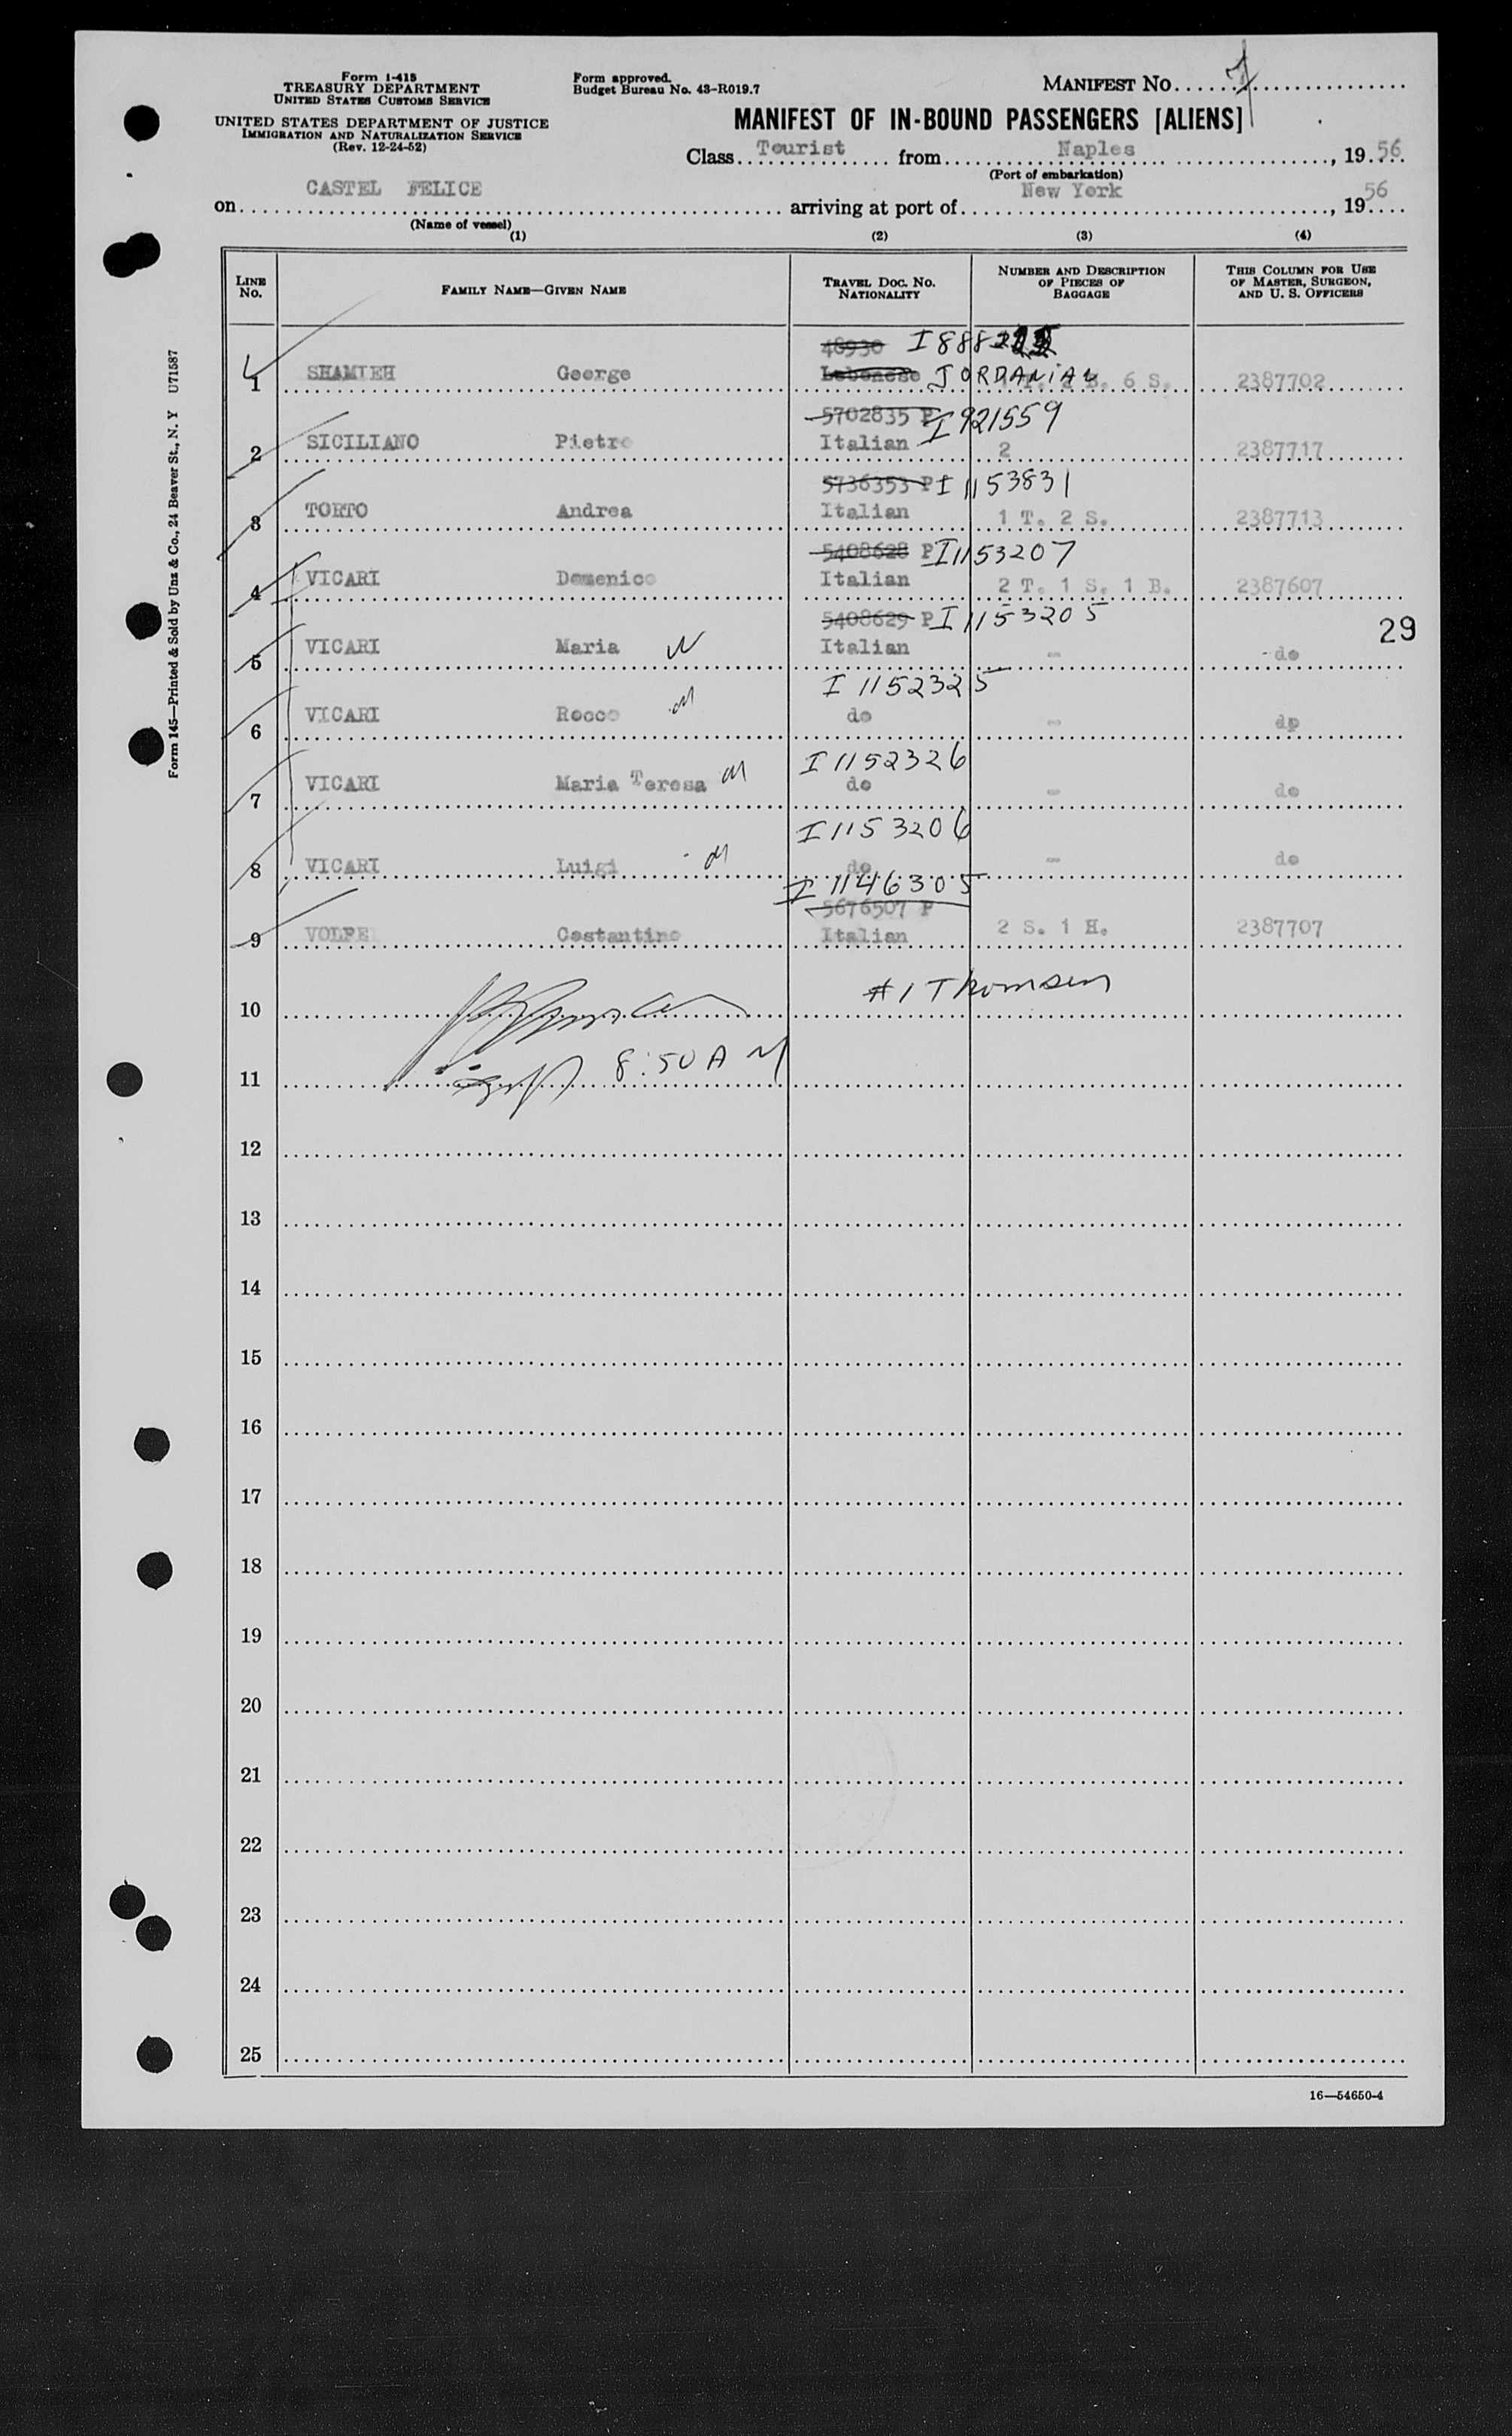 Form I-415
TREASURY DEPARTMENT
UNITED STATES CUSTOMS SERVICE
UNITED STATES DEPARTMENT OF JUSTICE
IMMIGRATION AND NATURALIZATION SERVICE
(Rev. 12-24-52)
Form approved.
Budget Bureau No. 43-R019.7
MANIFEST NO. 7
MANIFEST OF IN-BOUND PASSENGERS [ALIENS]
Class Tourist from Naples, 19 56
(Port of embarkation)
on CASTEL FELICE arriving at port of New York, 19 56
(Name of vessel)
(1) (2) (3) (4)
LINE NO. FAMILY NAME—GIVEN NAME TRAVEL DOC. NO. NATIONALITY NUMBER AND DESCRIPTION OF PIECES OF BAGGAGE THIS COLUMN FOR USE OF MASTER, SURGEON, AND U. S. OFFICERS
48930 I 888
1 SHAMIEH George Lebanese JORDANIAN 6 S. 2387702
5702835 P I 921559
2 SICILIANO Pietro Italian 2 2387717
5736353 P I 1153831
3 TORTO Andrea Italian 1 T. 2 S. 2387713
5408628 P I 1153207
4 VICARI Domenico Italian 2 T. 1 S. 1 B. 2387607
5408629 P I 1153205
5 VICARI Maria Italian - do
29
I 1152325
6 VICARI Rocco do - do
I 1152326
7 VICARI Maria Teresa do - do
I 1153206
8 VICARI Luigi do - do
I 1146305
5676507 P
9 VOLPE Costantino Italian 2 S. 1 H. 2387707
10 #1 Thomsen
11 8:50 A M
12
13
14
15
16
17
18
19
20
21
22
23
24
25
16—54650-4
Form 145—Printed & Sold by Unz & Co., 24 Beaver St., N. Y U71587